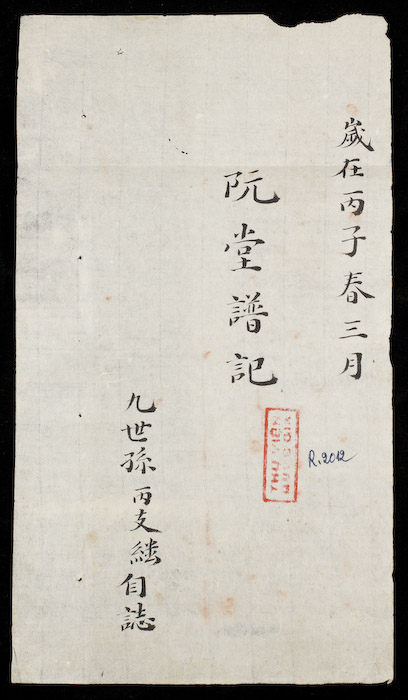 歲在丙子春三月
阮堂譜記
R.2012
九世孫丙支繙自誌